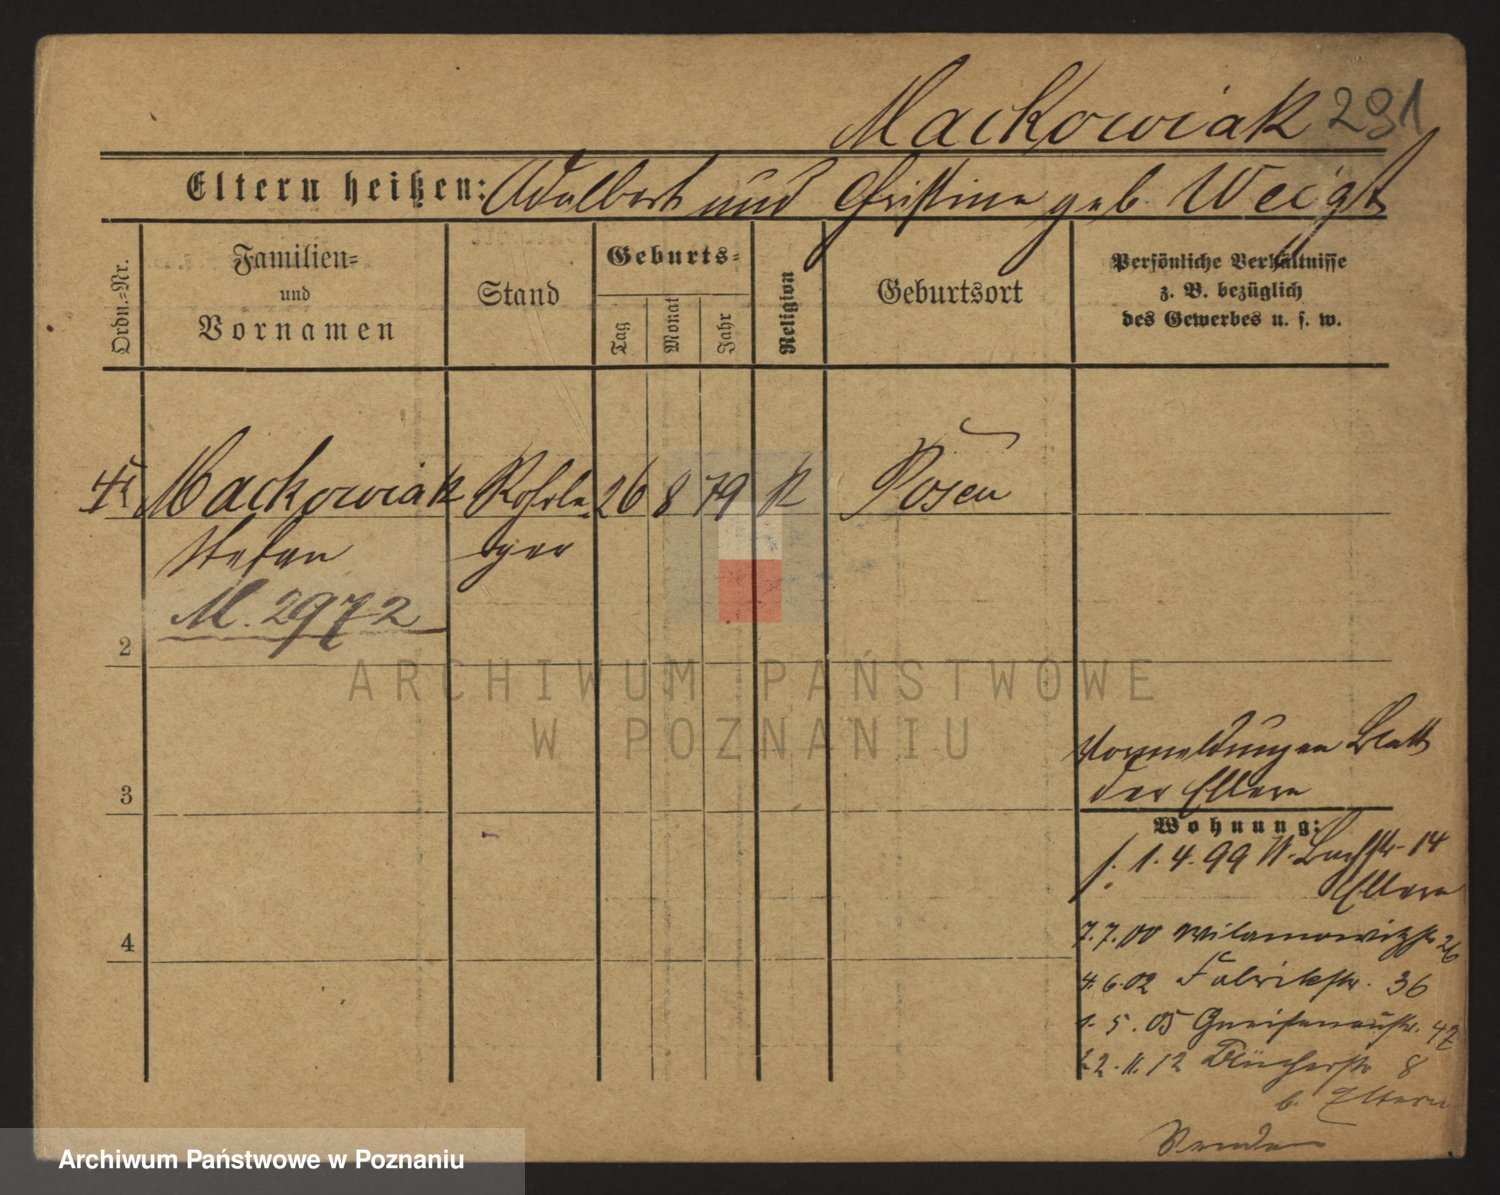 Mackowiak 291
Eltern heißen: Adalbert und Christine geb Weigt
Ordn.-Nr.
Familien-
und
Vornamen
Stand
Geburts-
Tag
Monat
Jahr
Religion
Geburtsort
Persönliche Verhältnisse
z. B. bezüglich
des Gewerbes u. s. w.
Mackowiak Rohrle 26 8 79 K Posen
Stefan ger
M. 2972
2
ARCHIWUM PAŃSTWOWE
W POZNANIU
Vormeldungen Blatt
der Eltern
3
Wohnung:
1.4.99 N. Bachstr 14
Eltern
7.7.00 Wilamowitzstr 26
4.6.02 Fabrikstr. 36
1.5.05 Gneisenaustr. 42
22.11.12 Blücherstr 8
b. Eltern
4
Archiwum Państwowe w Poznaniu